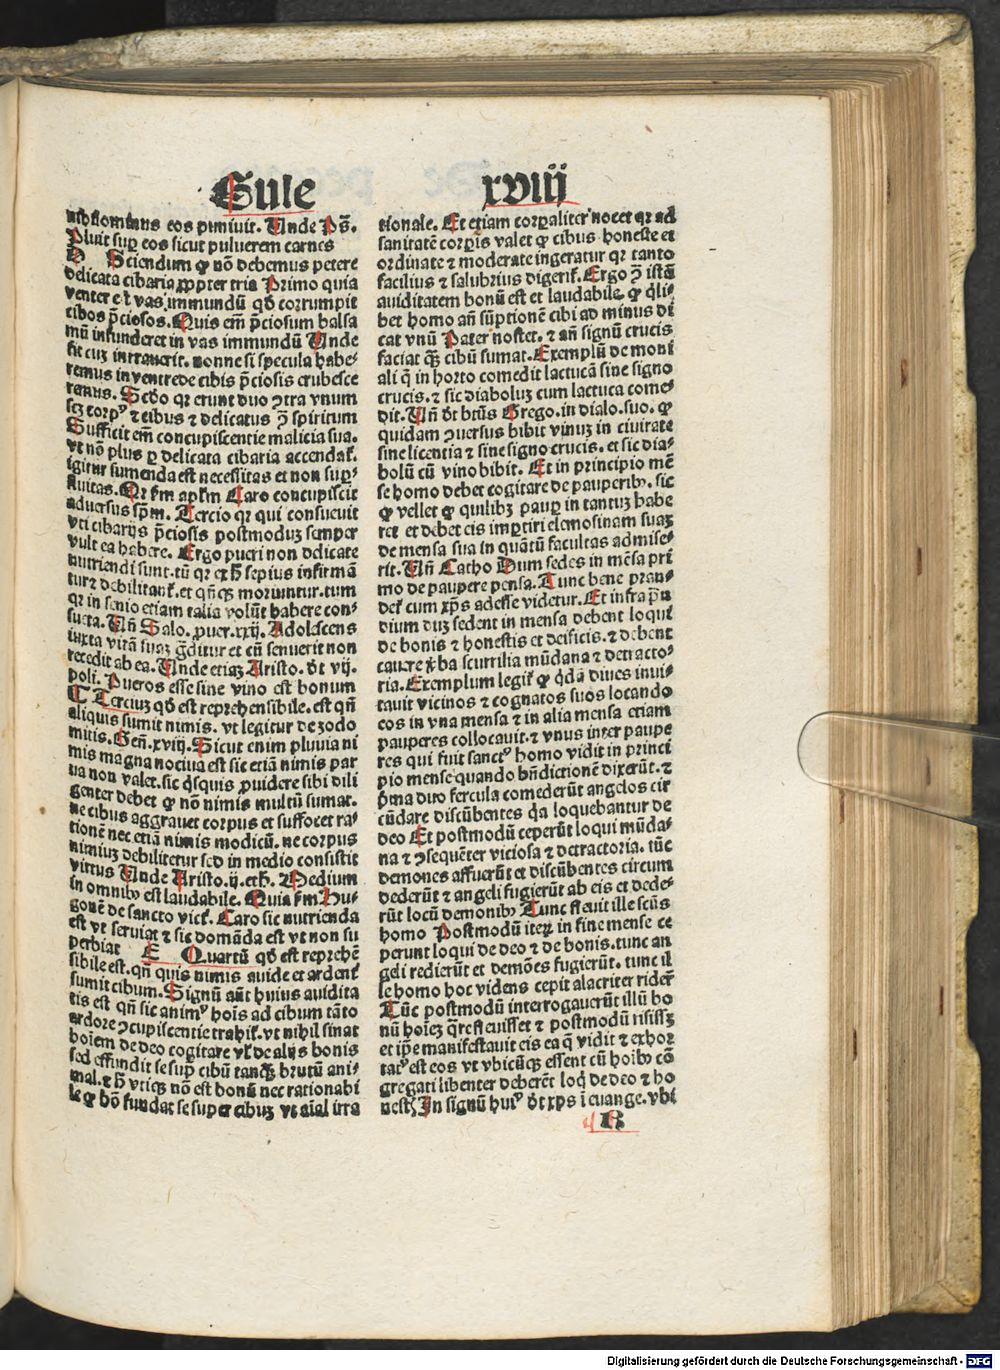 Gule xviij
nihilominus eos puniuit. Unde Ps̄.
Pluit suꝑ eos sicut puluerem carnes
D Sciendum ꝙ nō debemus petere
delicata cibaria ꝓpter tria Primo quia
venter est vas immundū qd̄ corrumpit
cibos p̄ciosos. Quis em̄ p̄ciosum balsa
mū infunderet in vas immundū Unde
sit cuꝫ intrauerit. nonne si specula habe⸗
remus in ventre de cibis p̄ciosis erubesce
remus. Scd̓o qꝛ erunt duo ꝯtra vnum
scꝫ corpꝰ ⁊ cibus ⁊ delicatus ꝯ̄ spiritum
Sufficit em̄ concupiscentie malicia sua.
vt nō plus ꝑ delicata cibaria accendat̄.
igitur sumenda est necessitas et non suꝑ⸗
fluitas. Qꝛ ẜm apl̄m Caro concupiscit
aduersus sp̄m. Tercio qꝛ qui consueuit
vti cibarijs p̄ciosis postmoduꝫ semper
vult ea habere. Ergo pueri non delicate
nutriendi sunt. tū qꝛ ex h̄ sepius infirmā
tur ⁊ debilitant̄. et qn̄qꝫ moriuntur. tum
qꝛ in senio etiam talia volūt habere con⸗
sueta. Un̄ Salo. ꝓuer. xxij. Adolescens
iuxta viā suaꝫ gᷓditur et cū senuerit non
recedit ab ea. Unde etiaꝫ Aristo. dt̄ vij.
poli. Pueros esse sine vino est bonum
C Terciuꝫ qd̄ est reprehensibile. est qn̄
aliquis sumit nimis. vt legitur de zodo
mitis. Gen̄. xviij. Sicut enim pluuia ni
mis magna nociua est sic etiā nimis par
ua non valet. sic q̄squis ꝓuidere sibi dili
genter debet ꝙ nō nimis multū sumat.
ne cibus aggrauet corpus et suffocet ra⸗
tionē nec etiā nimis modicū. ne corpus
nimiuꝫ debilitetur sed in medio consistit
virtus Unde Aristo. ij. eth. Medium
in omnibꝰ est laudabile. Quia ẜm Hu⸗
gonē de sancto vict̄. Caro sic nutrienda
est vt seruiat ⁊ sic domāda est vt non su
perbiat E Quartū qd̄ est reprehē
sibile est. qn̄ quis nimis auide et ardent̄
sumit cibum. Signū aut̄ huius auidita
tis est qn̄ sic animꝰ hoīs ad cibum tāto
ardore ꝯcupiscentie trahit̄. vt nihil sinat
hoīem de deo cogitare vl̄ de alijs bonis
sed effundit se suꝑ cibū tanqꝫ brutū ani⸗
mal. ⁊ h̄ vtiqꝫ nō est bonū nec rationabi
le ꝙ hō fundat se super cibuꝫ vt aīal irra
tionale. Et etiam corꝑaliter nocet qꝛ ad
sanitatē corꝑis valet ꝙ cibus honeste et
ordinate ⁊ moderate ingeratur qꝛ tanto
facilius ⁊ salubrius digerit̄. Ergo ꝯ̄ istā
auiditatem bonū est et laudabile. ꝙ q̄li⸗
bet homo an̄ sūptionē cibi ad minus di
cat vnū Pater noster. ⁊ an̄ signū crucis
faciat qꝫ cibū sumat. Exemplū de moni
ali q̄ in horto comedit lactucā sine signo
crucis. ⁊ sic diaboluꝫ cum lactuca come⸗
dit. Un̄ dt̄ btūs Grego. in dialo. suo. ꝙ
quidam ꝯuersus bibit vinuꝫ in ciuitate
sine licentia ⁊ sine signo crucis. et sic dia⸗
bolū cū vino bibit. Et in principio mē
se homo debet cogitare de pauperibꝰ. sic
ꝙ vellet ꝙ quilibꝫ pauꝑ in tantuꝫ habe
ret et debet eis imꝑtiri elemosinam suaꝫ
de mensa sua in quātū facultas admise⸗
rit. Un̄ Catho Dum sedes in mēsa pri
mo de paupere pensa. Tunc bene pran⸗
det̄ cum xp̄s adesse videtur. Et infra p̄n
dium duꝫ sedent in mensa debent loqui
de bonis ⁊ honestis et deificis. ⁊ debent
cauere v̓ba scurrilia mūdana ⁊ detracto⸗
ria. Exemplum legit̄ ꝙ qd̄ā diues inui⸗
tauit vicinos ⁊ cognatos suos locando
eos in vna mensa ⁊ in alia mensa etiam
pauperes collocauit. ⁊ vnus inter paupe
res qui fuit sanctꝰ homo vidit in princi
pio mense quando bn̄dictionē dixerūt. ⁊
p̄ma duo fercula comederūt angelos cir
cūdare discūbentes qᷓa loquebantur de
deo Et postmodū ceperūt loqui mūda⸗
na ⁊ ꝯsequēter viciosa ⁊ detractoria. tūc
demones affuerūt et discūbentes circum
dederūt ⁊ angeli fugierūt ab eis et dede⸗
rūt locū demonibꝰ Tunc fleuit ille scūs
homo Postmodū iteꝝ in fine mense ce
perunt loqui de deo ⁊ de bonis. tunc an
geli redierūt et demōes fugierūt. tunc il
le homo hoc videns cepit alacriter rider̄
Tūc postmodū interrogauerūt illū bo
nū hoīeꝫ qᷓre fleuisset ⁊ postmodū risissꝫ
et ip̄e manifestauit eis ea q̄ vidit ⁊ exhor
tatꝰ est eos vt vbicūqꝫ essent cū hoībꝰ cō
gregati libenter deberēt loq̄ de deo ⁊ ho
nestꝭ In signū huiꝰ dt̄ xp̄s ī euange. vbi
R
Digitalisierung gefördert durch die Deutsche Forschungsgemeinschaft - DFG